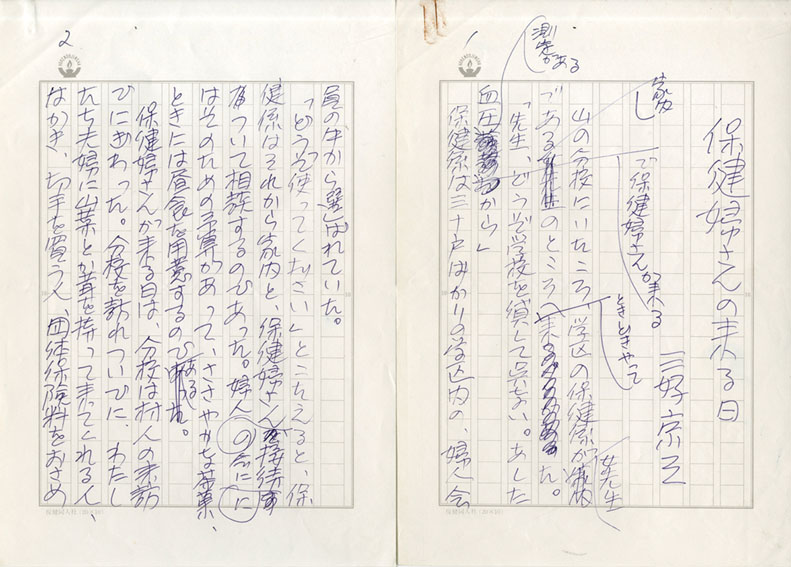 1
保健婦さんの来る日
三好京三
山の分校にいたころ、学区の保健係が
家内
し
女先生
である
のところへ
ときどきやって
来
た。
「先生、どうぞ学校を貸して呉ない。あした
で保健婦さんが来る
血圧
測定がある
から」
保健係は三十戸ばかりの学区内の、婦人会
2
員の中から選ばれていた。
「どうぞ使ってください」とこたえると、保
健係はそれから家内と、保健婦さんの接待に
ついて相談するのであった。婦人の会に
はそのための予算があって、ささやかな茶菓、
ときには昼食を用意するのである。
保健婦さんが来る日は、分校は村人の来訪
でにぎわった。分校を訪れついでに、わたし
たち夫婦に山菜とか茸を持って来てくれる人、
はがき、切手を買う人、団体保険料をおさめ
保健同人社（20×10）
保健同人社（20×10）